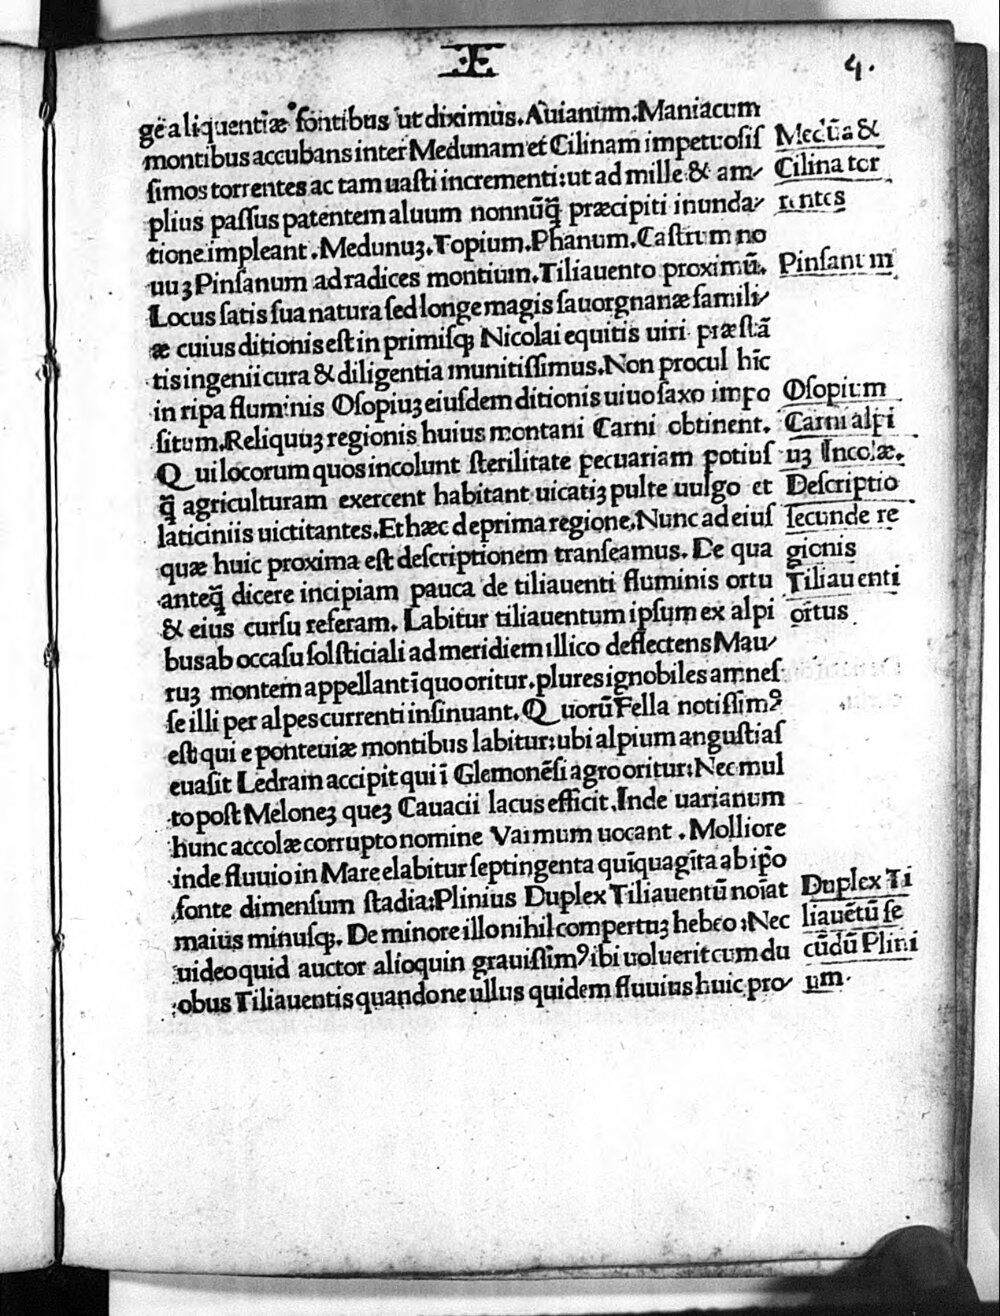 4.
gē aliquentiæ fontibus ut diximus. Auianum. Maniacum
montibus accubans inter Medunam et Cilinam impetuosiſ
ſimos torrentes ac tam uaſti incrementi: ut ad mille & am/
plius paſſus patentem aluum nonnūq̄ præcipiti inunda/
tione impleant. Medunuʒ. Topium. Phanum. Caſtrum no
uuʒ Pinſanum ad radices montium. Tiliauento proximū.
Locus ſatis ſua natura ſed longe magis ſauorgnanæ famili/
æ cuius ditionis eſt in primiſqʒ Nicolai equitis uiri præſtā
tis ingenii cura & diligentia munitiſſimus. Non procul hic
in ripa fluminis Oſopiuʒ eiuſdem ditionis uiuo ſaxo impo
ſitum. Reliquuʒ regionis huius montani Carni obtinent.
Qui locorum quos incolunt ſterilitate pecuariam potiuſ
q̄ agriculturam exercent habitant uicatiʒ pulte uulgo et
laticiniis uictitantes. Et hæc de prima regione. Nunc ad eiuſ
quæ huic proxima eſt deſcriptionem tranſeamus. De qua
anteq̄ dicere incipiam pauca de tiliauenti fluminis ortu
& eius curſu referam. Labitur tiliauentum ipſum ex alpi
bus ab occaſu ſolſticiali ad meridiem illico deflectens Mau/
ruʒ montem appellant ī quo oritur. plures ignobiles amneſ
ſe illi per alpes currenti inſinuant. Quorū Fella notiſſimꝰ
eſt qui e ponteuiæ montibus labitur: ubi alpium anguſtiaſ
euaſit Ledram accipit qui ī Glemonēſi agro oritur: Nec mul
to poſt Meloneʒ queʒ Cauacii lacus efficit. Inde uarianum
hunc accolæ corrupto nomine Vaimum uocant. Molliore
inde fluuio in Mare elabitur ſeptingenta quīquagīta ab ip̄o
fonte dimenſum ſtadia: Plinius Duplex Tiliauentū noīat
maius minuſqʒ. De minore illo nihil compertuʒ hebeo: Nec
uideo quid auctor alioquin grauiſſimꝰ ibi uoluerit cum du
obus Tiliauentis quando ne ullus quidem fluuius huic pro/
Medūa &
Cilina tor
rentes
Pinſanum
Oſopium
Carni alpi
uʒ Incolæ.
Deſcriptio
ſecunde re
gionis
Tiliauenti
ortus
Duplex Ti
liauētū ſe
cūdū Plini
um.